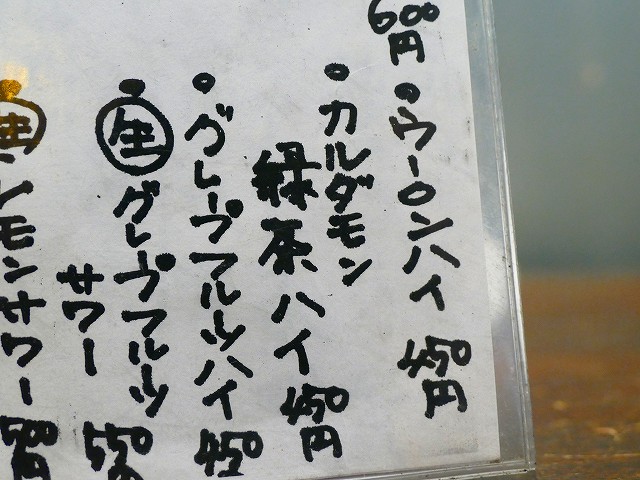 600円
・ウーロンハイ 450円
・カルダモン
緑茶ハイ 450円
・グレープフルーツハイ 450
・㊣グレープフルーツ
サワー 550円
レモンサワー 500円